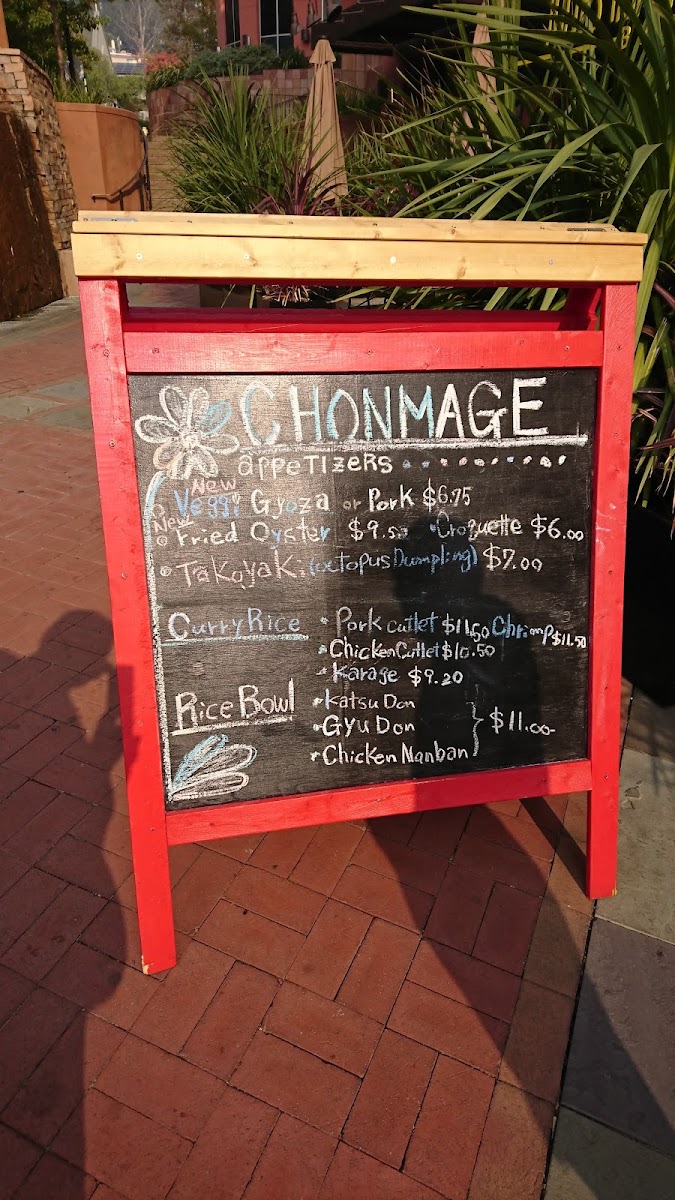 CHONMAGE
appetizers
New
Veggi Gyoza or Pork $6.75
New
Fried Oyster $9.50 Croquette $6.00
Takoyaki (octopus Dumpling) $7.00
Curry Rice
Pork cutlet $11.50 Chrimp $11.50
Chicken Cutlet $10.50
Karage $9.20
Rice Bowl
Katsu Don
Gyu Don } $11.00-
Chicken Nanban